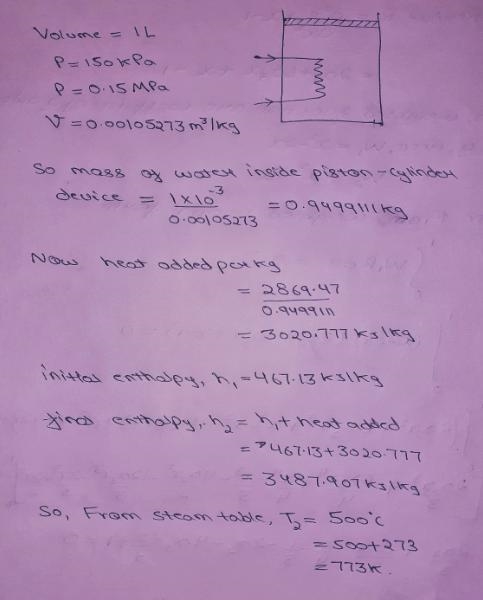 Volume = 1L
P = 150kPa
P = 0.15 MPa
V = 0.00105273 m³/kg
So mass of water inside piston-cylinder
device = 1×10⁻³ / 0.00105273 = 0.9499111kg
Now heat added per kg
= 2869.47 / 0.949911
= 3020.777 KJ/kg
initial enthalpy, h₁ = 467.13 KJ/kg
final enthalpy, h₂ = h₁ + heat added
= 467.13 + 3020.777
= 3487.907 KJ/kg
So, From steam table, T₂ = 500°C
= 500+273
= 773K.